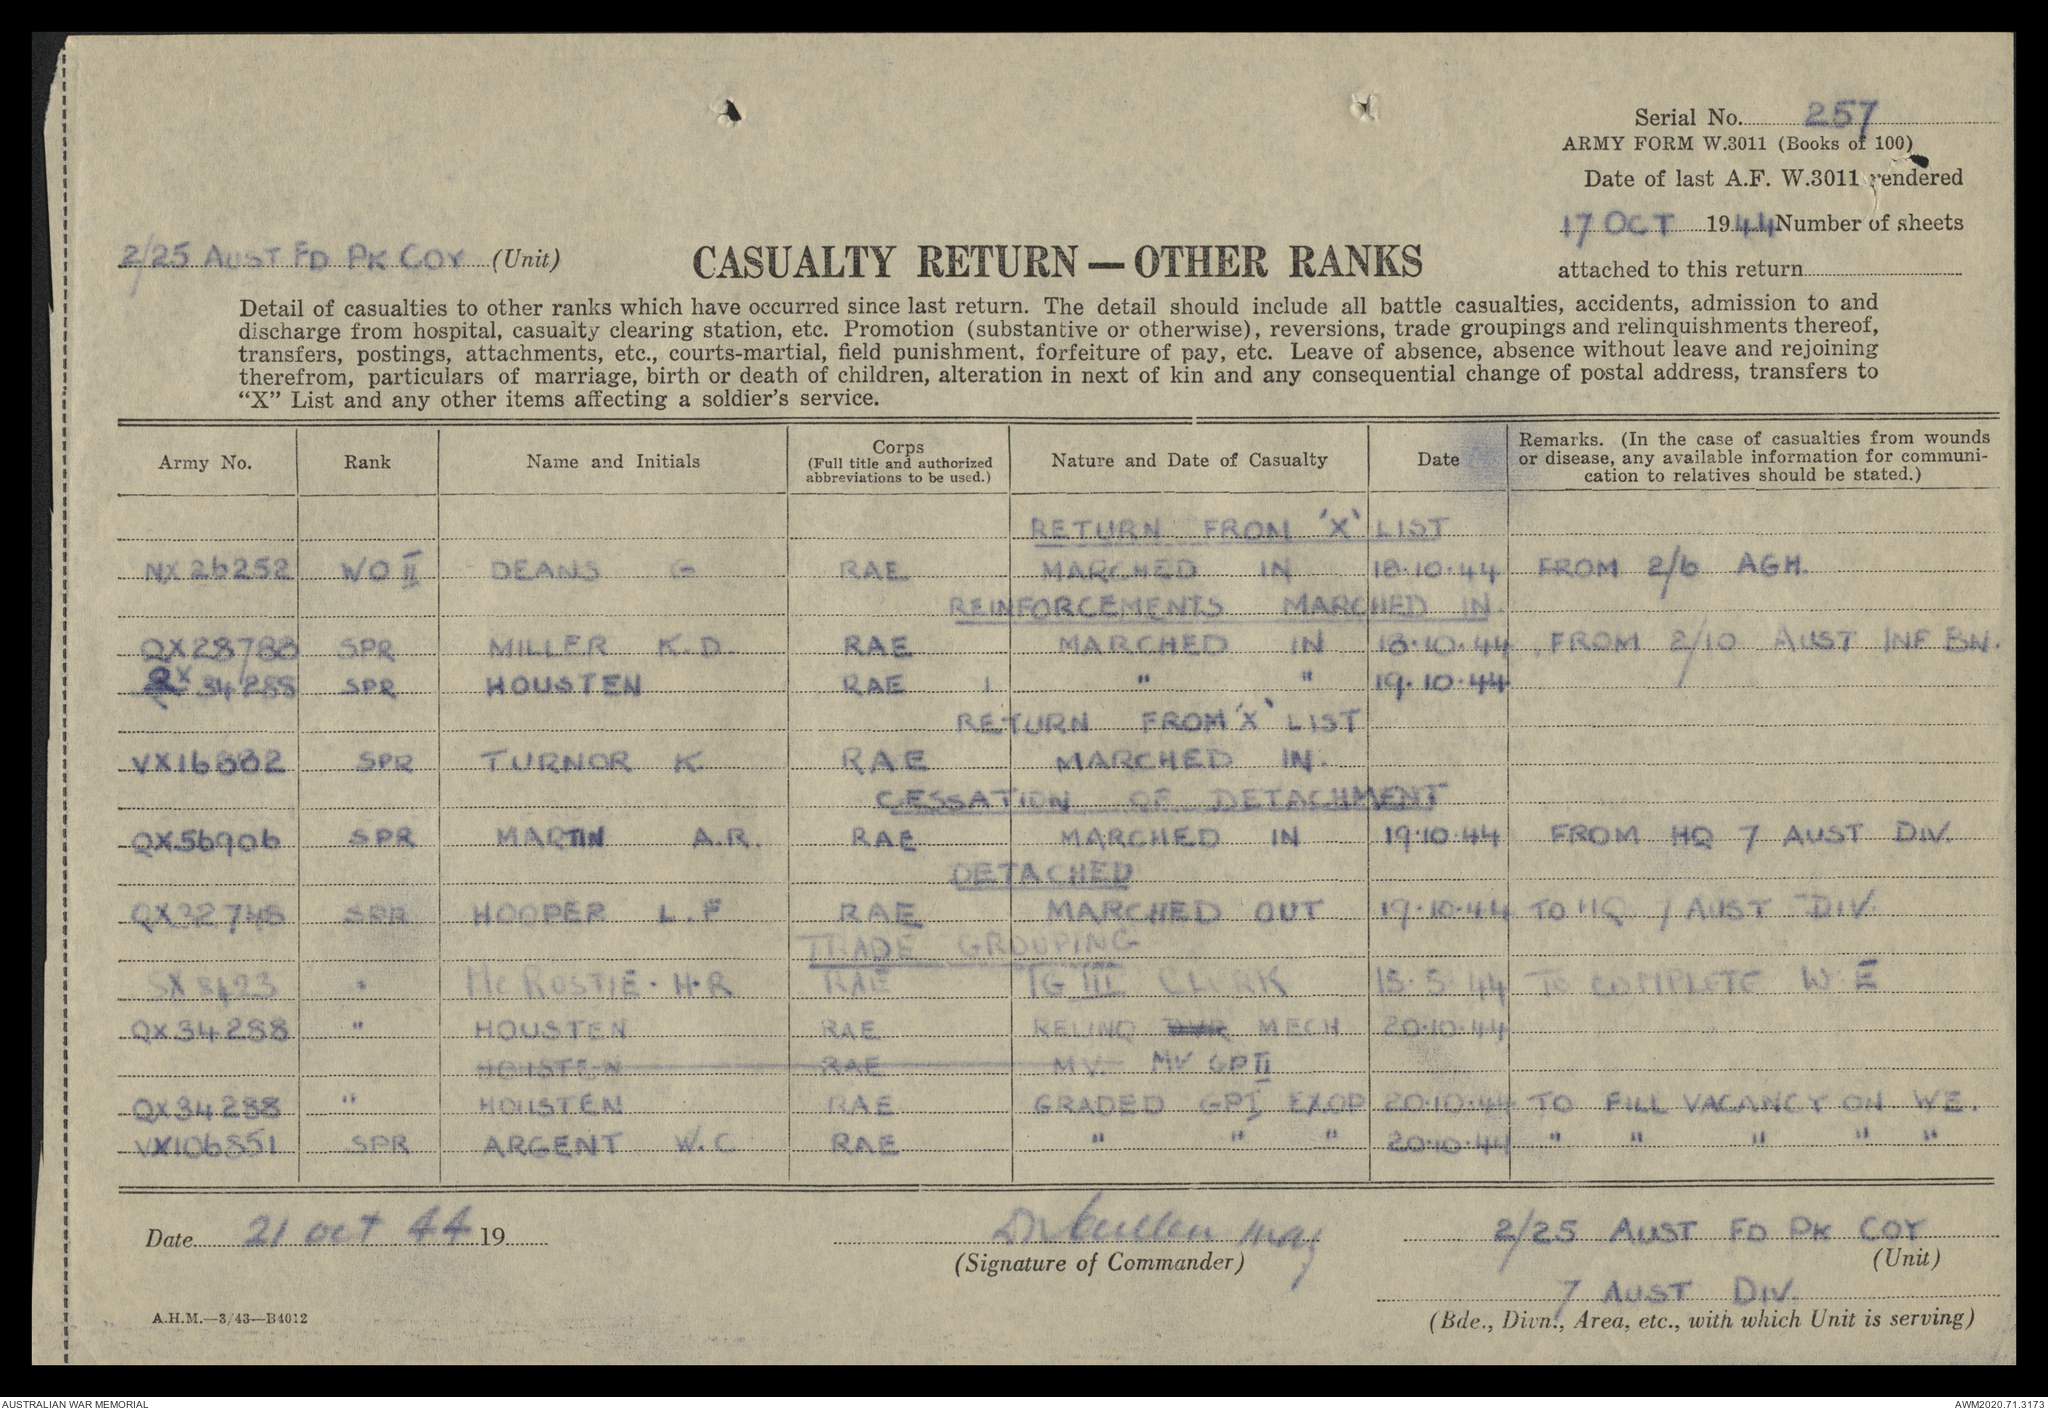 Serial No. 257
ARMY FORM W.3011 (Books of 100)
Date of last A.F. W.3011 rendered
17 OCT 1944 Number of sheets
attached to this return
2/25 AUST FD PK COY (Unit)
CASUALTY RETURN — OTHER RANKS
Detail of casualties to other ranks which have occurred since last return. The detail should include all battle casualties, accidents, admission to and
discharge from hospital, casualty clearing station, etc. Promotion (substantive or otherwise), reversions, trade groupings and relinquishments thereof,
transfers, postings, attachments, etc., courts-martial, field punishment, forfeiture of pay, etc. Leave of absence, absence without leave and rejoining
therefrom, particulars of marriage, birth or death of children, alteration in next of kin and any consequential change of postal address, transfers to
“X” List and any other items affecting a soldier’s service.
Army No. Rank Name and Initials Corps (Full title and authorized abbreviations to be used.) Nature and Date of Casualty Date Remarks. (In the case of casualties from wounds or disease, any available information for communi-cation to relatives should be stated.)
RETURN FROM 'X' LIST
NX26252 WO II DEANS G RAE MARCHED IN 18.10.44 FROM 2/6 AGH.
REINFORCEMENTS MARCHED IN.
QX28788 SPR MILLER K.D. RAE MARCHED IN 18.10.44 FROM 2/10 AUST INF BN.
QX34288 SPR HOUSTEN RAE " " 19.10.44
RETURN FROM 'X' LIST
SPR TURNOR K RAE MARCHED IN.
CESSATION OF DETACHMENT
QX56906 SPR MARTIN A.R. RAE MARCHED IN 19.10.44 FROM HQ 7 AUST DIV.
DETACHED
QX32748 SPR HOOPER L.F RAE MARCHED OUT 19.10.44 TO HQ 7 AUST DIV.
TRADE GROUPING
" McROSTIE. H.R RAE TG III CLERK 15.5.44 TO COMPLETE W.E
QX34288 " HOUSTEN RAE RELINQ MECH 20.10.44
HOUSTEN RAE MV. MV GP II
QX34288 " HOUSTEN RAE GRADED GPI EXOP 20.10.44 TO FILL VACANCY ON WE.
VX106851 SPR ARGENT W.C RAE " " " 20.10.44 " " " " "
Date 21 Oct 44 19
Maj
(Signature of Commander)
2/25 AUST FD PK COY
(Unit)
7 AUST DIV.
(Bde., Divn., Area, etc., with which Unit is serving)
A.H.M.—3/43—B4012
AUSTRALIAN WAR MEMORIAL
AWM2020.71.3173